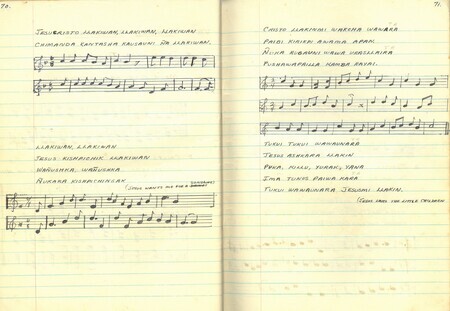 70.
JESUCRISTO LLAKIWAN, LLAKIWAN, LLAKIWAN
CHIMANDA KANTASHA KAUSAUNI ÑA LLAKIWAN.
LLAKIWAN, LLAKIWAN
JESUS KISHPICHIK LLAKIWAN
WAÑUSHKA, WAÑUSHKA
ÑUKATA KISHPICHINGAK
(JESUS WANTS ME FOR A SUNBEAM)
71.
CRISTO LLAKINGUI WAKCHA WAWATA
PAIBI AWANA APAN.
ÑUKA WAWA
PUSHAWAPAILLA KAMBA
TUKUI TUKUI WAWAUNATA
JESUS ASHKATA LLAKIN
PUKA, KILLU, YURAK, YANA
IMA TUNUS PAIWA KARA
TUKUI WAWAUNATA JESUSMI LLAKIN.
(JESUS LOVES THE LITTLE CHILDREN)